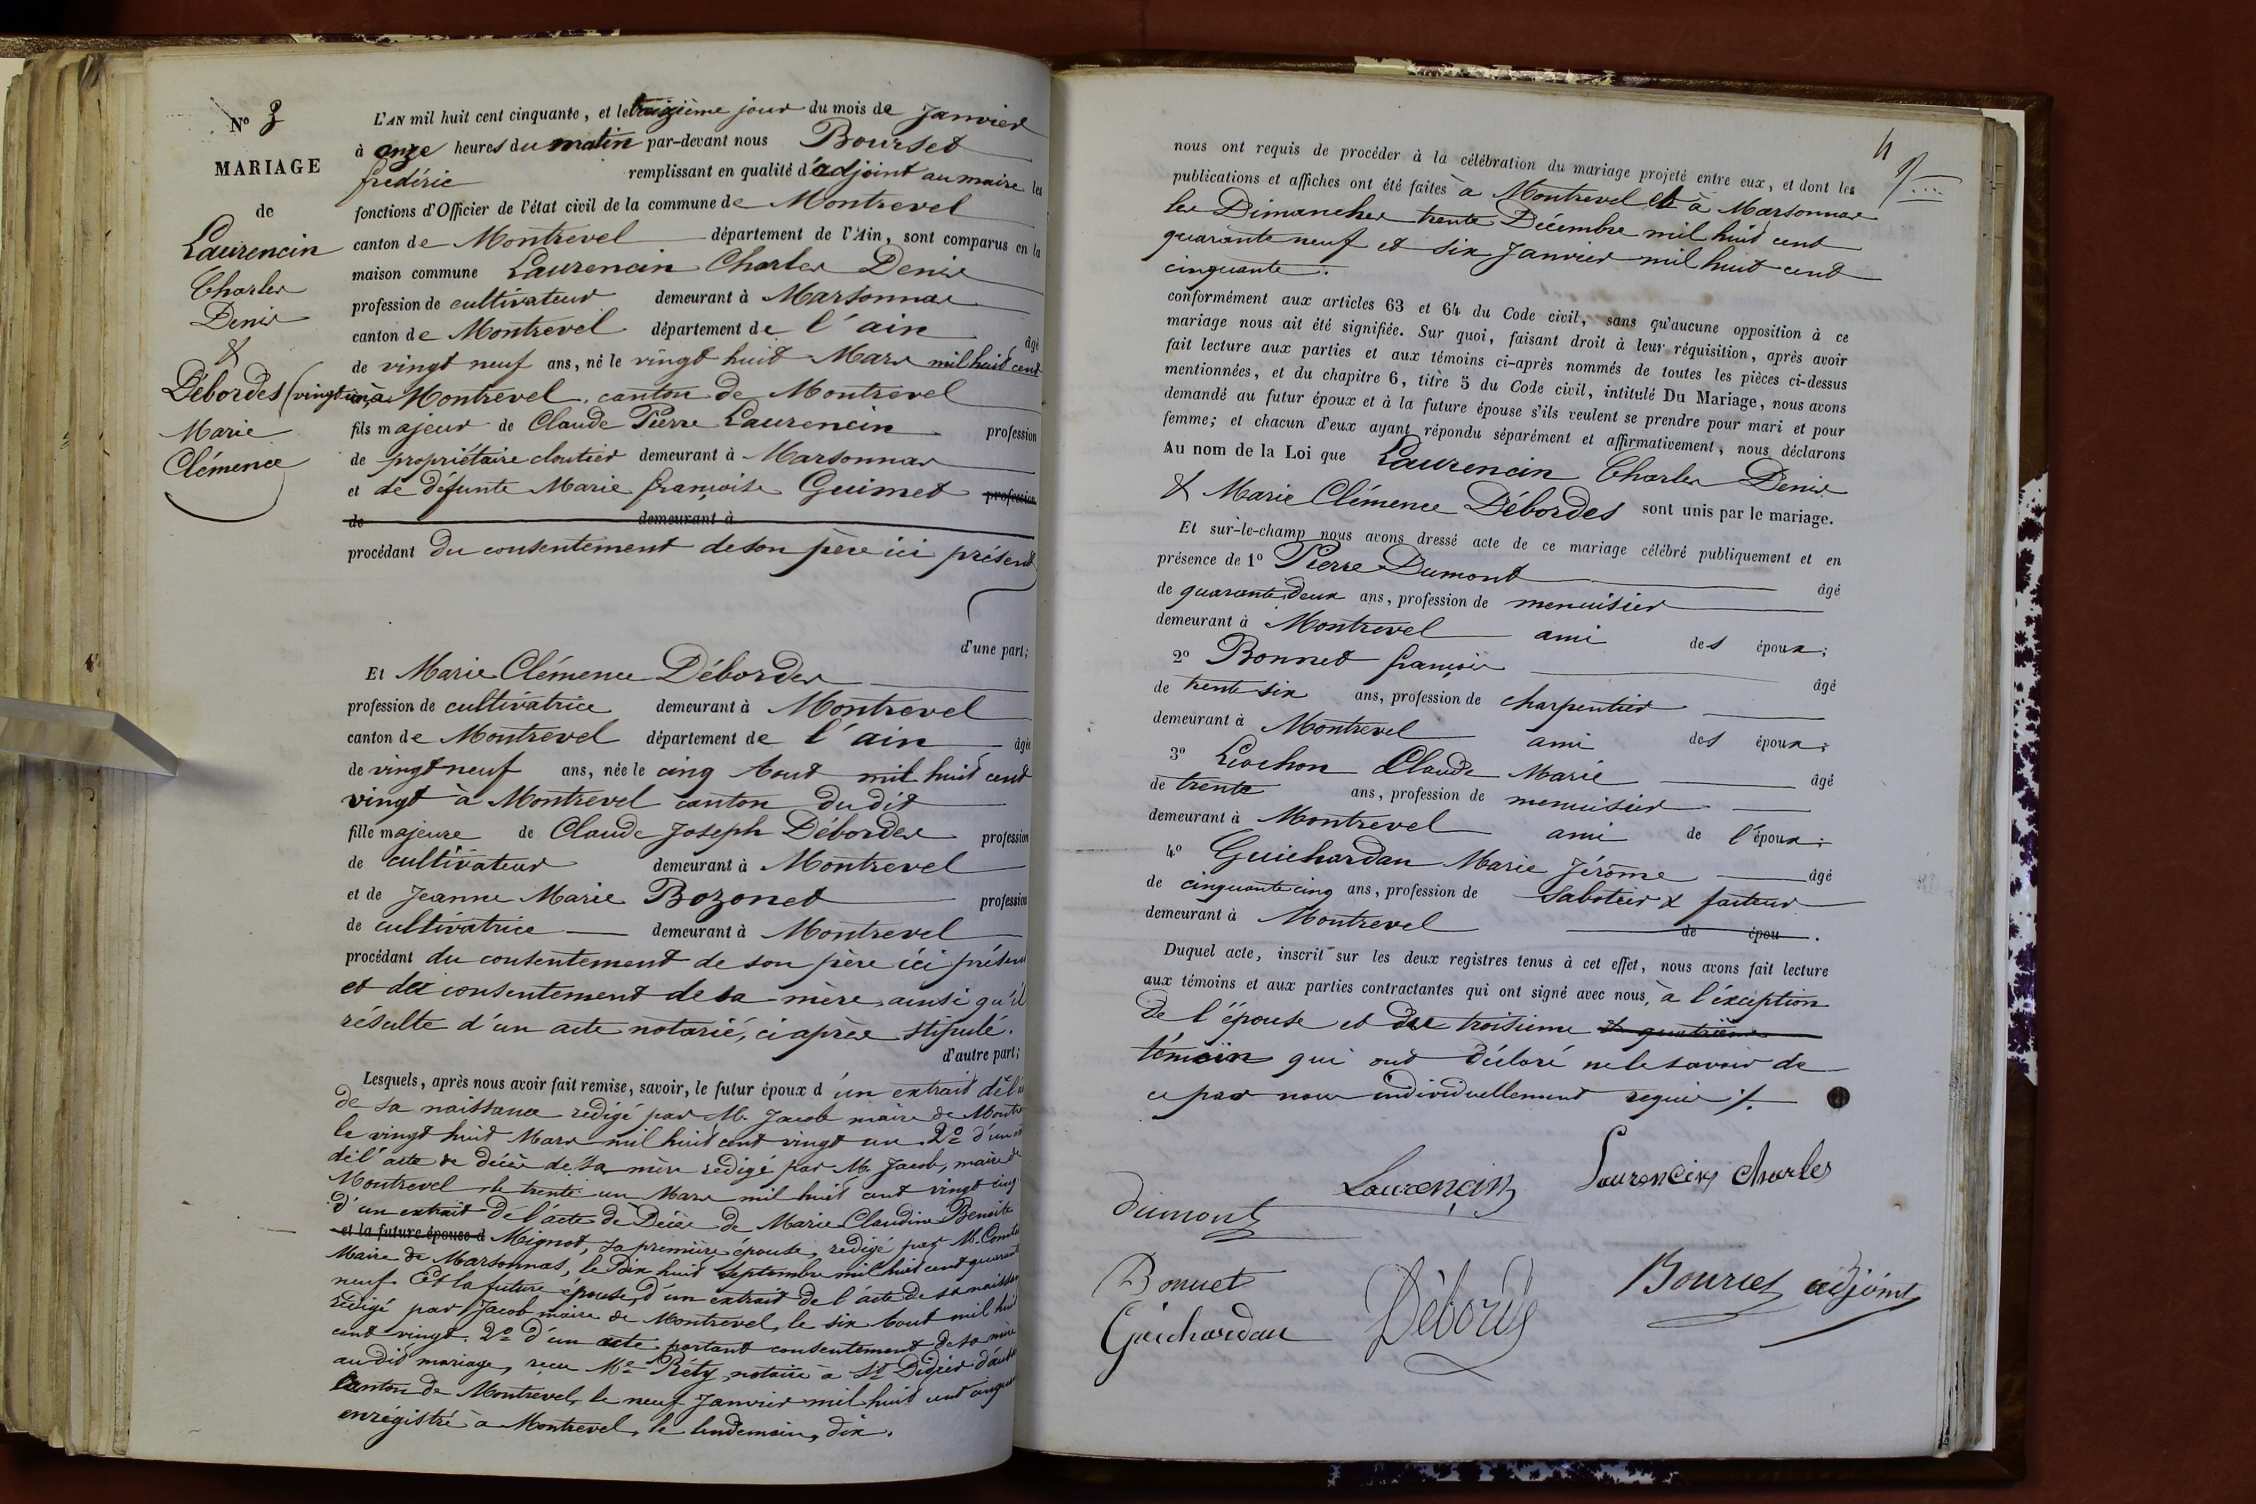 N° 3
MARIAGE
de
Laurencin
Charles
Denis
&
Débordes
Marie
Clémence
L'AN mil huit cent cinquante, et le treizième jour du mois de Janvier
à onze heures du matin par-devant nous Bourset
frédéric remplissant en qualité d'adjoint au maire les
fonctions d'Officier de l'état civil de la commune de Montrevel
canton de Montrevel département de l'Ain, sont comparus en la
maison commune Laurencin Charles Denis
profession de cultivateur demeurant à Marsonnas
canton de Montrevel département de l'ain âgé
de vingt neuf ans, né le vingt huit Mars mil huit cent
(vingt un, à Montrevel, canton de Montrevel
fils majeur de Claude Pierre Laurencin profession
de propriétaire cloutier demeurant à Marsonnas
et de défunte Marie françoise Guimet profession
de demeurant à
procédant du consentement de son père ici présent
d'une part;
Et Marie Clémence Débordes
profession de cultivatrice demeurant à Montrevel
canton de Montrevel département de l'ain âgée
de vingt neuf ans, née le cinq Aout mil huit cent
vingt à Montrevel canton dudit
fille majeure de Claude Joseph Débordes profession
de cultivateur demeurant à Montrevel
et de Jeanne Marie Bozonet profession
de cultivatrice demeurant à Montrevel
procédant du consentement de son père ici présent
et du consentement de sa mère, ainsi qu'il
résulte d'un acte notarié, ci après stipulé.
d'autre part;
Lesquels, après nous avoir fait remise, savoir, le futur époux d'un extrait de l'
de sa naissance redigé par M. Jacob maire de Montre
le vingt huit Mars mil huit cent vingt un. 2° d'un
de l'acte de décès de sa mère redigé par M. Jacob, maire de
Montrevel le trente un Mars mil huit cent vingt cinq
d'un extrait de l'acte de Décès de Marie Claudine Benoite
et la future épouse d Mignot, sa première épouse, redigé par M. Comte
Maire de Marsonnas, le Dix huit Septembre mil huit cent quarante
neuf. Et la future épouse, d'un extrait de l'acte de sa naissan
redigé par Jacob maire de Montrevel, le six Aout mil huit
cent vingt. 2° d'un acte portant consentement de sa mère
audit mariage, reçu Me Réty, notaire à St Didier d'auss
Canton de Montrevel, le neuf Janvier mil huit cent cinquan
enrégistré à Montrevel, le lendemain, dix.
4
nous ont requis de procéder à la célébration du mariage projeté entre eux, et dont les
publications et affiches ont été faites à Montrevel et à Marsonnas
les Dimanches trente Décembre mil huit cent
quarante neuf et six Janvier mil huit cent
cinquante.
conformément aux articles 63 et 64 du Code civil, sans qu'aucune opposition à ce
mariage nous ait été signifiée. Sur quoi, faisant droit à leur réquisition, après avoir
fait lecture aux parties et aux témoins ci-après nommés de toutes les pièces ci-dessus
mentionnées, et du chapitre 6, titre 5 du Code civil, intitulé Du Mariage, nous avons
demandé au futur époux et à la future épouse s'ils veulent se prendre pour mari et pour
femme; et chacun d'eux ayant répondu séparément et affirmativement, nous déclarons
Au nom de la Loi que Laurencin Charles Denis
& Marie Clémence Débordes sont unis par le mariage.
Et sur-le-champ nous avons dressé acte de ce mariage célébré publiquement et en
présence de 1° Pierre Dumont âgé
de quarante deux ans, profession de menuisier
demeurant à Montrevel ami des époux;
2° Bonnet françois âgé
de trente six ans, profession de charpentier
demeurant à Montrevel ami des époux;
3° Liochon Claude Marie âgé
de trente ans, profession de menuisier
demeurant à Montrevel ami de l'époux;
4° Guichardan Marie Jérôme âgé
de cinquante cinq ans, profession de Sabotier & facteur
demeurant à Montrevel de épou .
Duquel acte, inscrit sur les deux registres tenus à cet effet, nous avons fait lecture
aux témoins et aux parties contractantes qui ont signé avec nous, à l'éxception
De l'épouse et du troisieme & quatrième
témoin qui ont déclaré ne le savoir de
ce par nous individuellement requis ./.
Laurencin Laurencin Charles
Dumont
Bonnet Bourcet adjoint
Guichardan Débordes